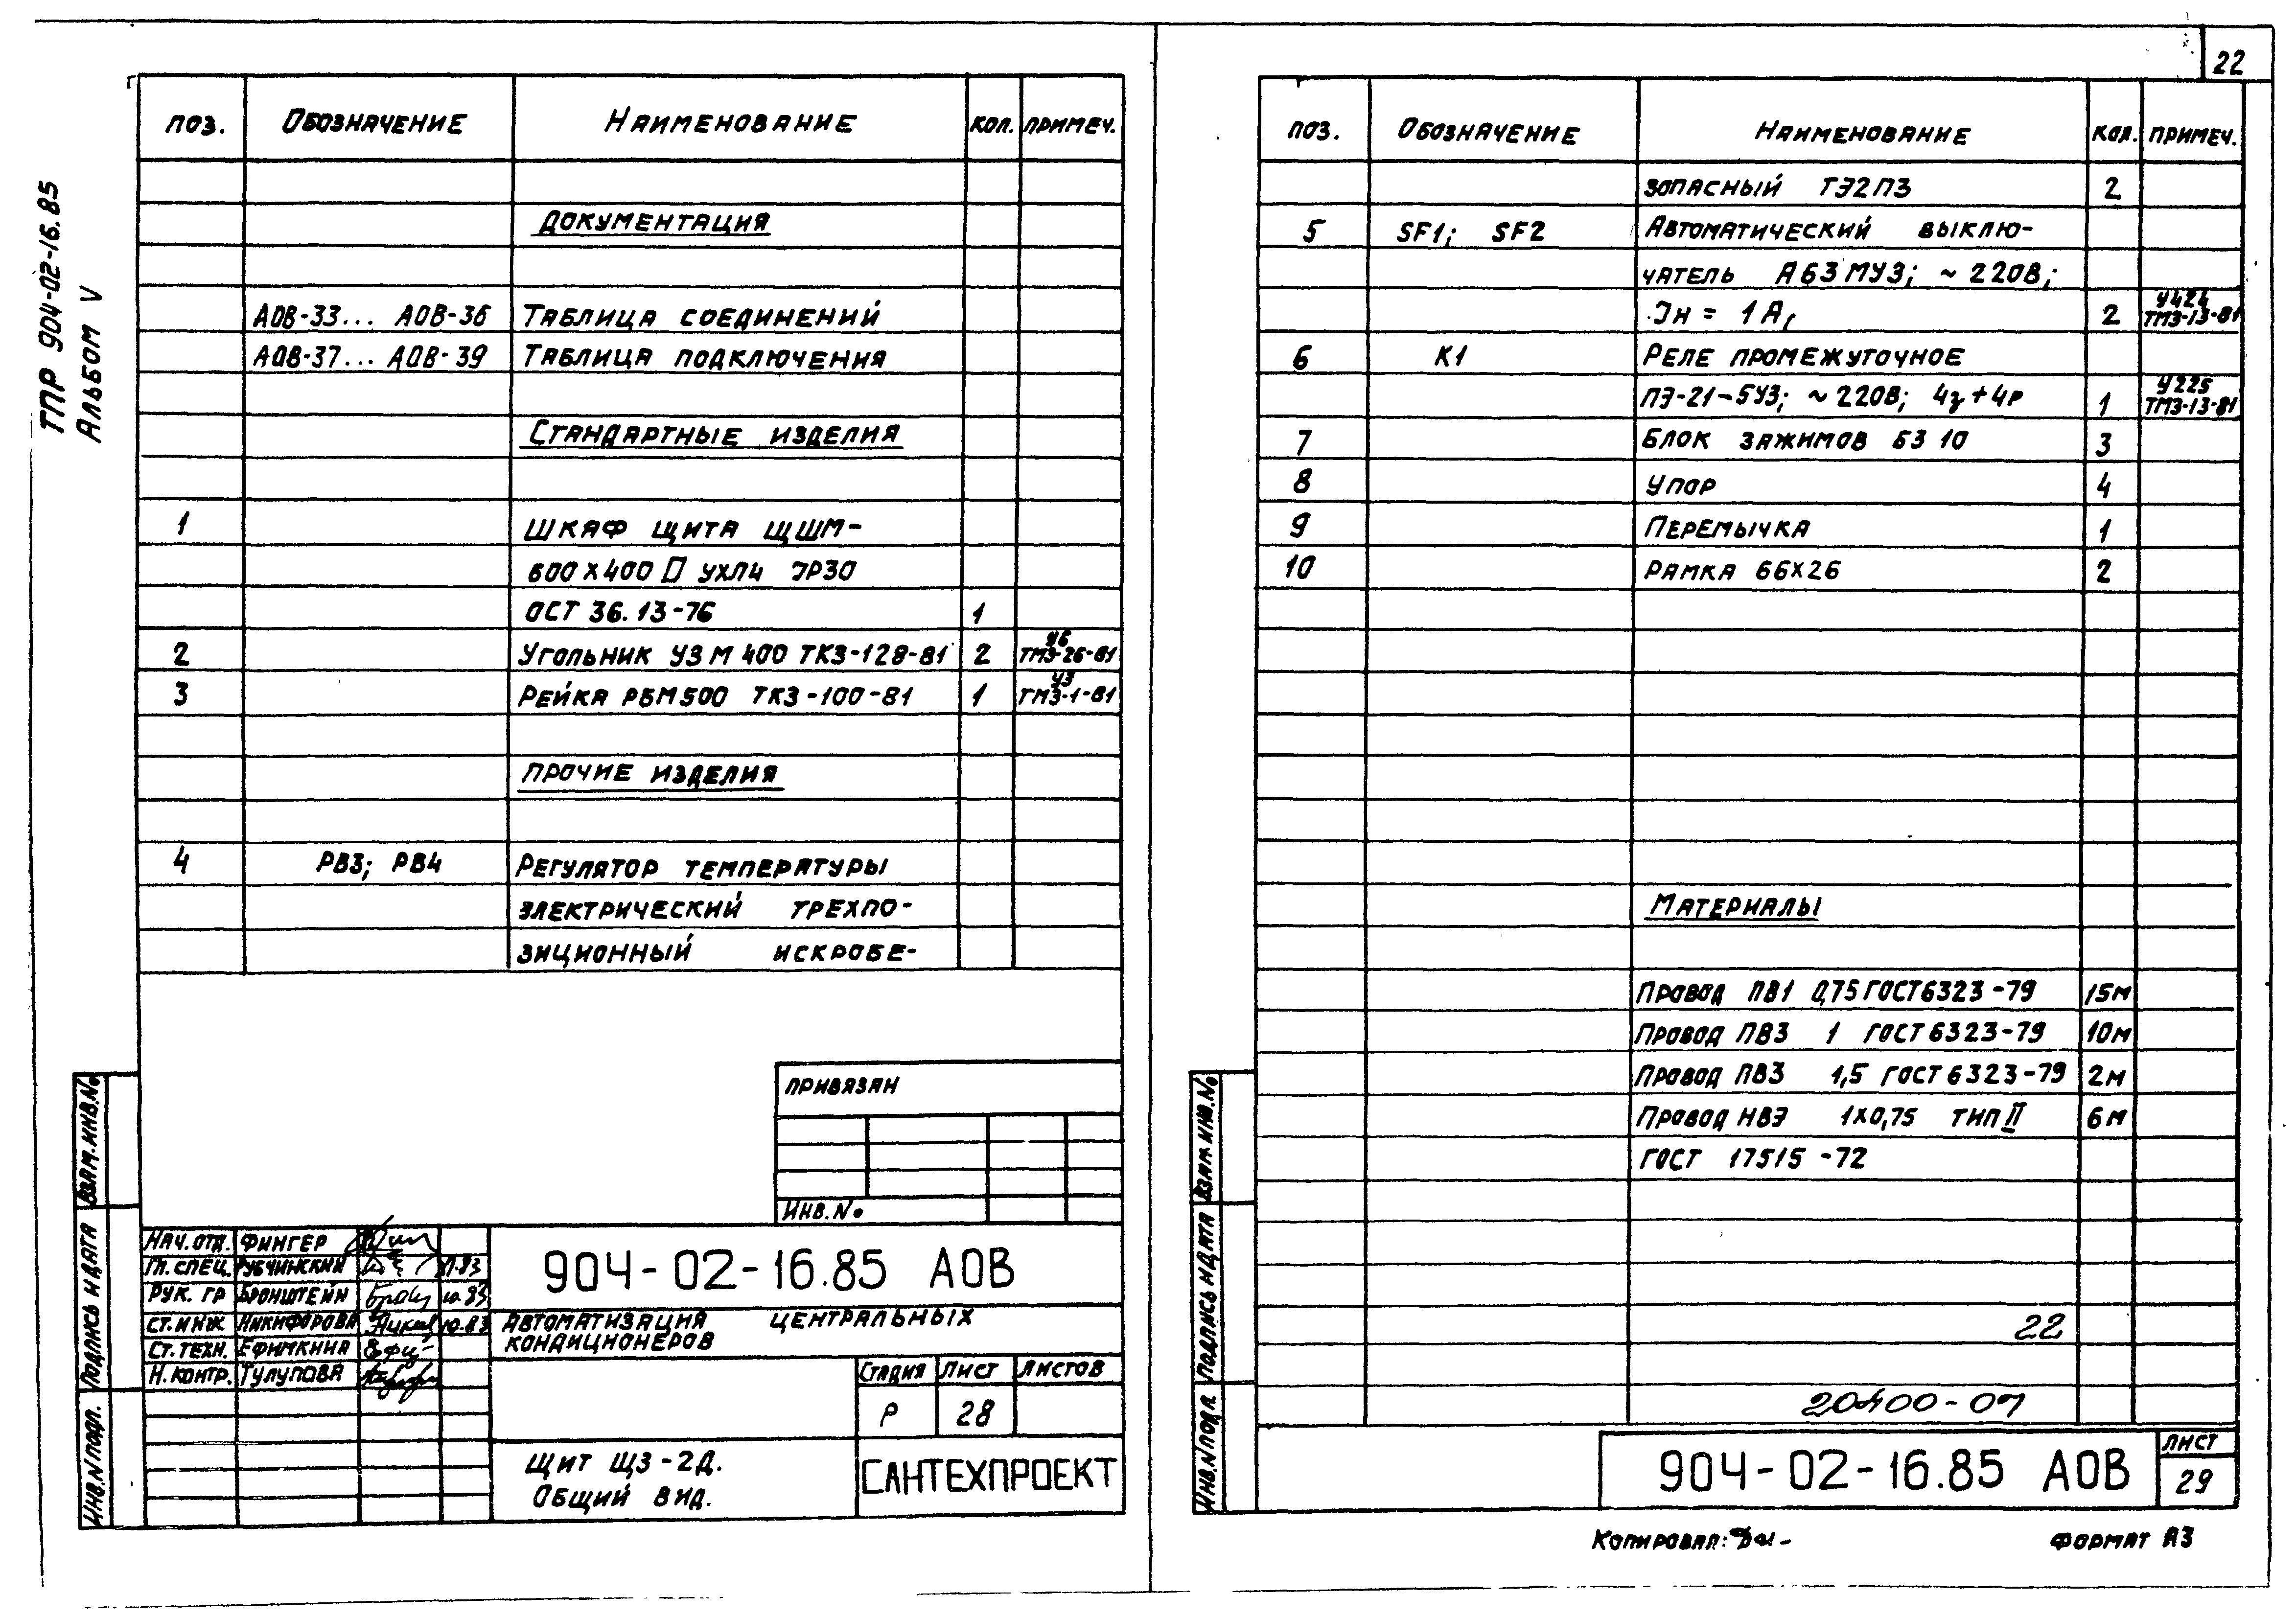 22
ТПР 904-02-16.85
Альбом V
поз. Обозначение Наименование кол. примеч.
Документация
АОВ-33... АОВ-36 Таблица соединений
АОВ-37... АОВ-39 Таблица подключения
Стандартные изделия
1 Шкаф щита ЩШМ-
600х400 УХЛ4 IP30
ОСТ 36.13-76 1
2 Угольник УЗМ 400 ТК3-128-81 2 У6 ТМ3-26-81
3 Рейка РБМ500 ТК3-100-81 1 У3 ТМ3-1-81
Прочие изделия
4 РВ3; РВ4 Регулятор температуры
электрический трехпо-
зиционный искробе-
Привязан
Инв.№
Нач.отд. Фингер
Гл.спец. Рубчинский 11.83
Рук. гр Бронштейн 10.83
Ст.инж Никифорова 10.83
Ст.техн. Ефимкина
Н.контр. Тулупова
904-02-16.85 АОВ
Автоматизация центральных
кондиционеров
Стадия Лист Листов
Р 28
Щит Щ3-2Д.
Общий вид.
САНТЕХПРОЕКТ
Взам.инв.№
Подпись и дата
Инв.№ подл.
поз. Обозначение Наименование кол. примеч.
запасный ТЭ2П3 2
5 SF1; SF2 Автоматический выклю-
чатель А63МУ3; ~220В;
Iн = 1А, 2 У424 ТМ3-13-81
6 К1 Реле промежуточное
ПЭ-21-5У3; ~220В; 4з+4р 1 У225 ТМ3-13-81
7 Блок зажимов БЗ 10 3
8 Упор 4
9 Перемычка 1
10 Рамка 66х26 2
Материалы
Провод ПВ1 0,75 ГОСТ6323-79 15м
Провод ПВ3 1 ГОСТ6323-79 10м
Провод ПВ3 1,5 ГОСТ6323-79 2м
Провод НВЭ 1х0,75 тип II 6м
ГОСТ 17515-72
22
20400-07
904-02-16.85 АОВ
Лист
29
Взам.инв.№
Подпись и дата
Инв.№ подл.
Копировал:
Формат А3